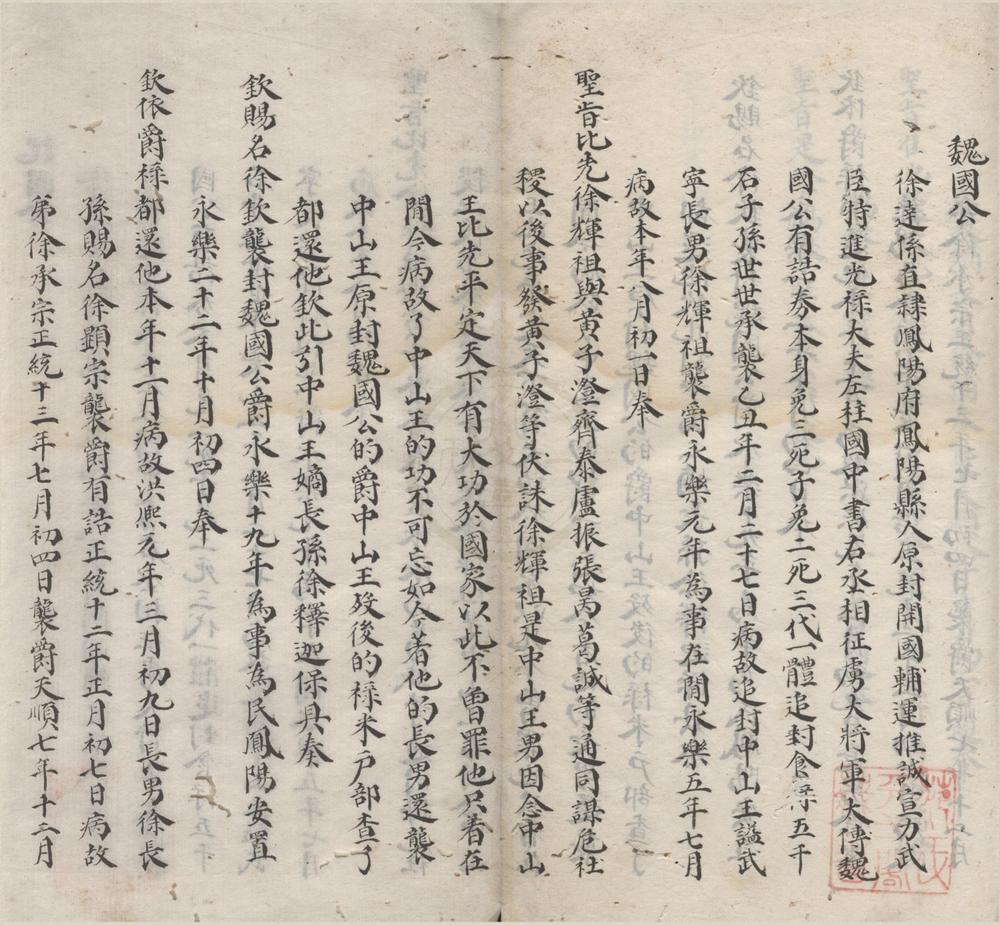 魏國公
徐達係直隷鳳陽府鳳陽縣人原封開國輔運推誠宣力武
臣特進光祿大夫左柱國中書右丞相征虜大將軍太傅魏
國公有誥券本身免三死子免二死三代一體追封食祿五千
石子孫世世承襲乙丑年二月二十七日病故追封中山王謚武
寧長男徐輝祖襲爵永樂元年為事在閒永樂五年七月
病故本年八月初一日奉
聖旨比先徐輝祖與黃子澄齊泰盧振張昺葛誠等通同謀危社
稷以後事發黃子澄等伏誅徐輝祖是中山王男因念中山
王比先平定天下有大功於國家以此不曾罪他只著在
閒今病故了中山王的功不可忘如今著他的長男還襲
中山王原封魏國公的爵中山王歿後的祿米戶部查了
都還他欽此引中山王嫡長孫徐釋迦保具奏
欽賜名徐欽襲封魏國公爵永樂十九年為事為民鳳陽安置
永樂二十二年十月初四日奉
欽依爵祿都還他本年十一月病故洪熙元年三月初九日長男徐長
孫賜名徐顯宗襲爵有誥正統十二年正月初七日病故
弟徐承宗正統十三年七月初四日襲爵天順七年十二月